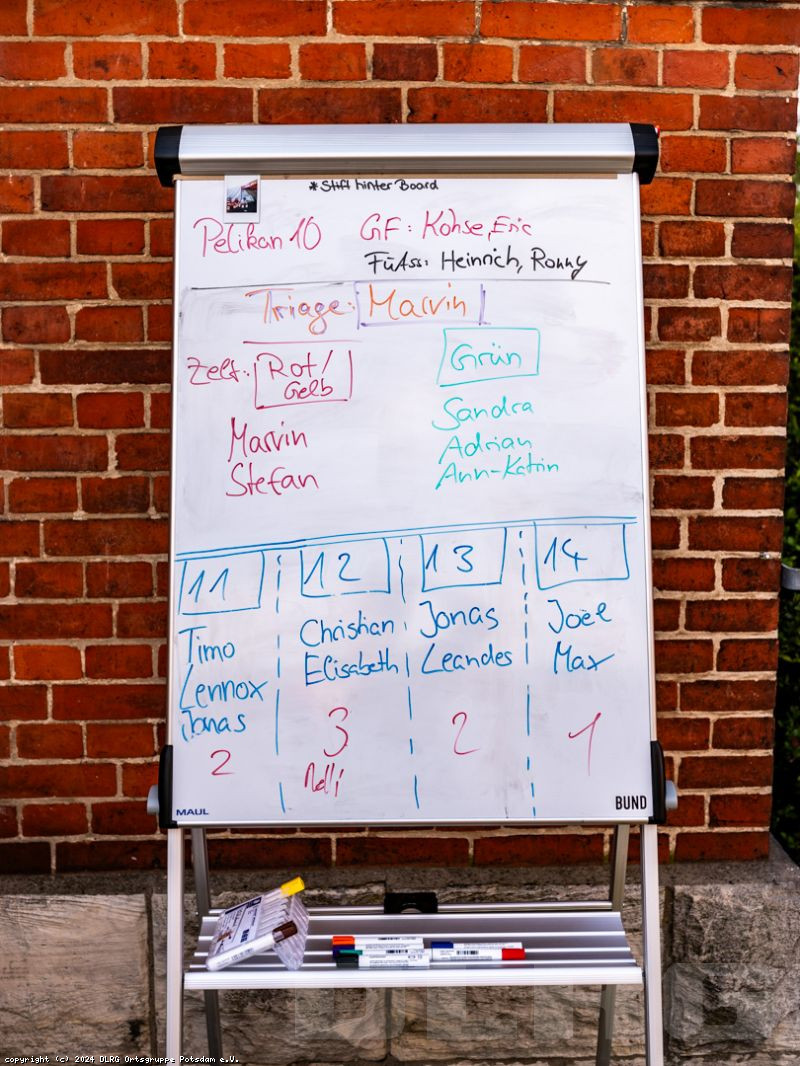 *Stift hinter Board
Pelikan 10 GF: Kohse, Eric
FüAss: Heinrich, Ronny
Triage: Marvin
Zelt: Rot/
Gelb
Grün
Marvin
Stefan
Sandra
Adrian
Ann-Katrin
11 12 13 14
Timo
Lennox
Jonas
2
Christian
Elisabeth
3
Nelli
Jonas
Leandes
2
Joël
Max
1
MAUL
BUND
copyright (c) 2024 DLRG Ortsgruppe Potsdam e.V.